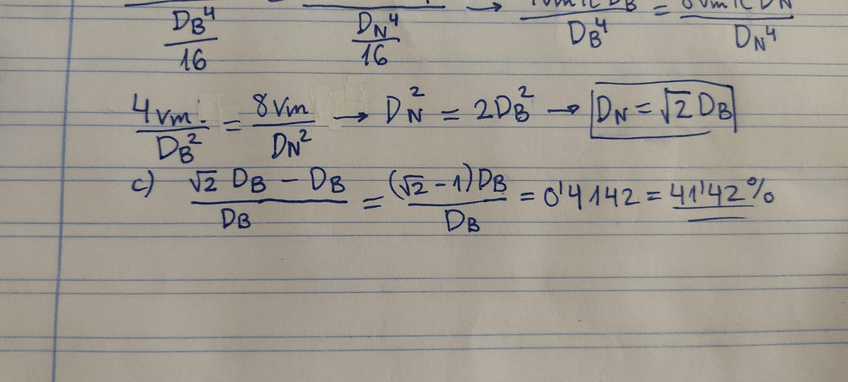 D_B⁴/16   D_N⁴/16 → /D_B⁴ = /D_N⁴
4vm/D_B² = 8vm/D_N² → D_N² = 2D_B² → D_N = √2 D_B
c) (√2 D_B − D_B)/D_B = (√2 − 1)D_B/D_B = 0'4142 = 41'42%